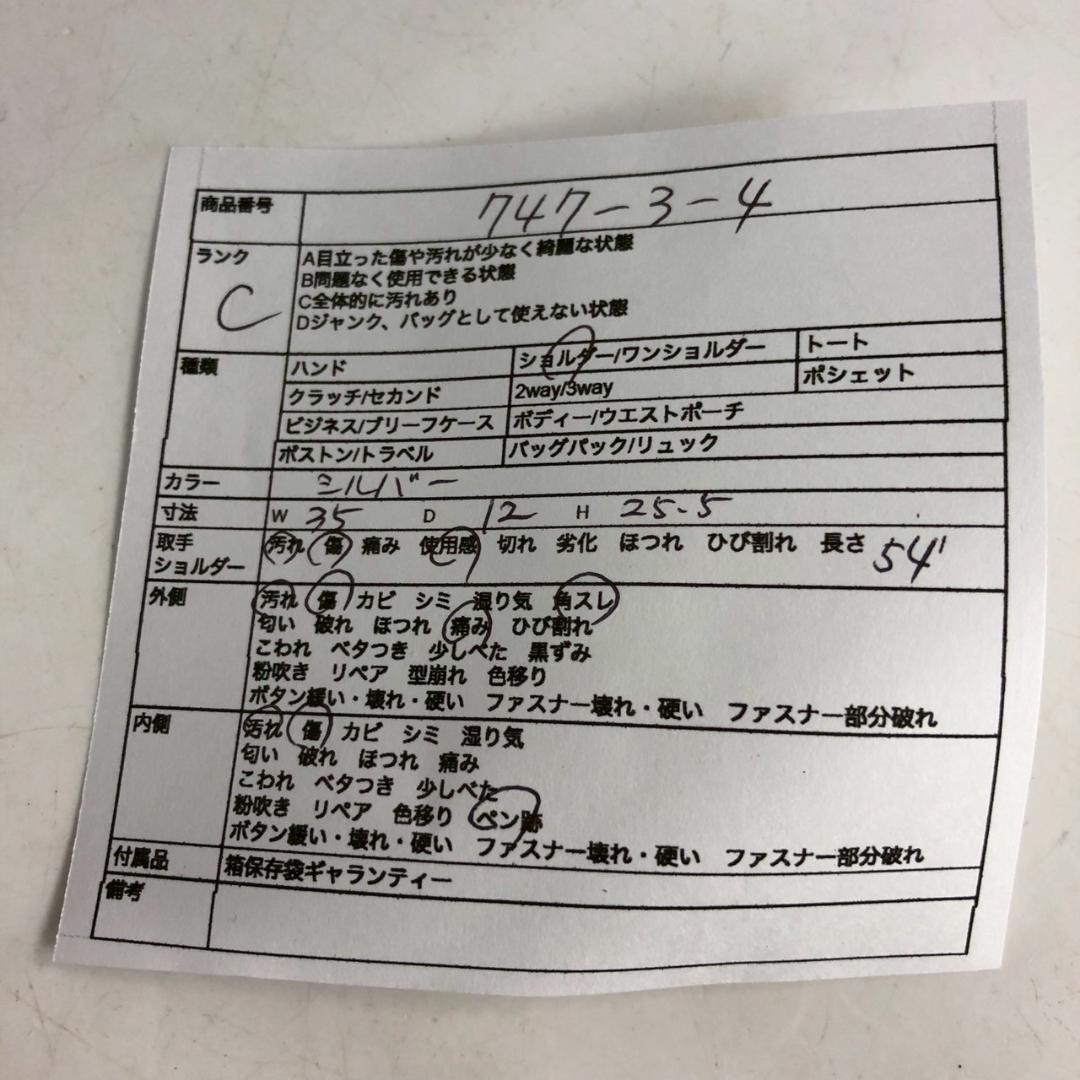 商品番号 747-3-4
ランク C
A目立った傷や汚れが少なく綺麗な状態
B問題なく使用できる状態
C全体的に汚れあり
Dジャンク、バッグとして使えない状態
種類 ハンド ショルダー/ワンショルダー トート
クラッチ/セカンド 2way/3way ポシェット
ビジネス/ブリーフケース ボディー/ウエストポーチ
ボストン/トラベル バッグパック/リュック
カラー シルバー
寸法 W 35 D 12 H 25.5
取手 汚れ 傷 痛み 使用感 切れ 劣化 ほつれ ひび割れ 長さ 54
ショルダー
外側 汚れ 傷 カビ シミ 湿り気 角スレ
匂い 破れ ほつれ 痛み ひび割れ
こわれ ベタつき 少しべた 黒ずみ
粉吹き リペア 型崩れ 色移り
ボタン緩い・壊れ・硬い ファスナー壊れ・硬い ファスナー部分破れ
内側 汚れ 傷 カビ シミ 湿り気
匂い 破れ ほつれ 痛み
こわれ ベタつき 少しべた
粉吹き リペア 色移り ペン跡
ボタン緩い・壊れ・硬い ファスナー壊れ・硬い ファスナー部分破れ
付属品 箱保存袋ギャランティー
備考